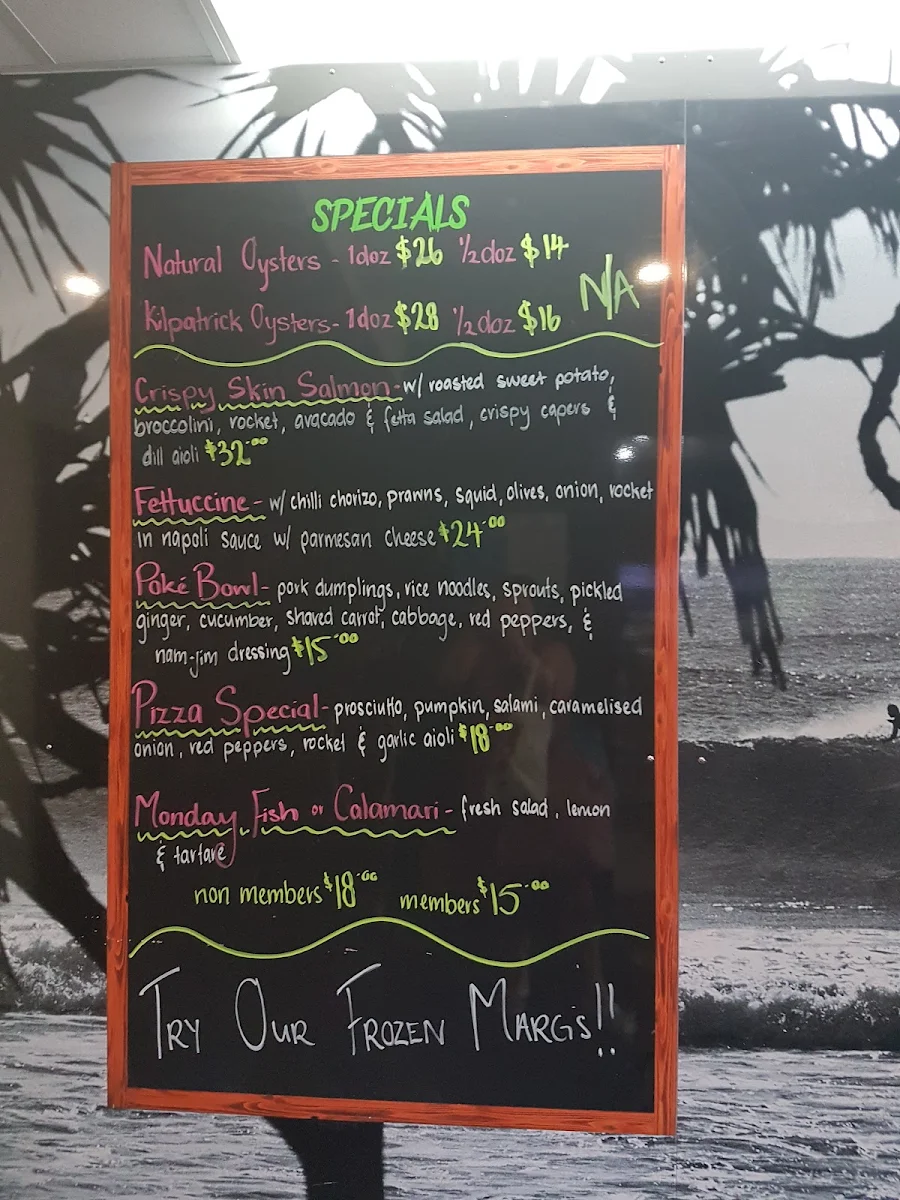 SPECIALS
Natural Oysters - 1doz $26 ½doz $14
N/A
Kilpatrick Oysters - 1doz $28 ½doz $16
Crispy Skin Salmon - w/ roasted sweet potato,
broccolini, rocket, avacado & fetta salad, crispy capers &
dill aioli $32.00
Fettuccine - w/ chilli chorizo, prawns, squid, olives, onion, rocket
in napoli sauce w/ parmesan cheese $24.00
Poké Bowl - pork dumplings, rice noodles, sprouts, pickled
ginger, cucumber, shaved carrot, cabbage, red peppers, &
nam-jim dressing $15.00
Pizza Special - prosciutto, pumpkin, salami, caramelised
onion, red peppers, rocket & garlic aioli $18.00
Monday Fish or Calamari - fresh salad, lemon
& tartare
non members $18.00 members $15.00
TRY OUR FROZEN MARG'S!!